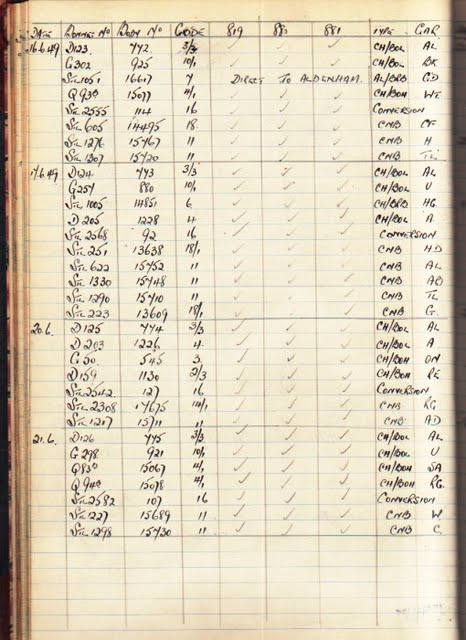 DATE BONNET No BODY No CODE 819 88 881 TYPE GAR
16.6.49 D123 742 3/3 ✓ ✓ ✓ CH/BOL AL
G302 925 10/1 ✓ ✓ ✓ CH/BOL BK
1051 16617 7 DIRECT TO ALDENHAM. AL/BRB GD
Q93 15077 4/1 ✓ ✓ ✓ CH/BOH WT
2555 114 16 ✓ ✓ ✓ CONVERSION
605 14495 18 ✓ ✓ ✓ CNB CF
1276 15467 11 ✓ ✓ ✓ CNB H
1307 15420 11 ✓ ✓ ✓ CNB TL
17.6.49 D124 743 3/3 ✓ ✓ ✓ CH/BOL AL
G257 880 10/1 ✓ ✓ ✓ CH/BOL U
1005 14851 6 ✓ ✓ ✓ CH/BRB HG
D205 1228 4 ✓ ✓ ✓ CH/BOL A
2568 92 16 ✓ ✓ ✓ CONVERSION
251 13638 18/1 ✓ ✓ ✓ CNB HD
622 15452 11 ✓ ✓ ✓ CNB AL
1330 15448 11 ✓ ✓ ✓ CNB AD
1290 15410 11 ✓ ✓ ✓ CNB TL
223 13609 18/1 ✓ ✓ ✓ CNB G.
20.6. D125 744 3/3 ✓ ✓ ✓ CH/BOL AL
D203 1226 4 ✓ ✓ ✓ CH/BOL A
G50 545 3 ✓ ✓ ✓ CH/BOH ON
D159 1130 2/3 ✓ ✓ ✓ CH/BOH RE
2542 127 16 ✓ ✓ ✓ CONVERSION
2308 17675 14/1 ✓ ✓ ✓ CNB RG
1217 15711 11 ✓ ✓ ✓ CNB AD
21.6. D126 745 3/3 ✓ ✓ ✓ CH/BOL AL
G298 921 10/1 ✓ ✓ ✓ CH/BOL U
Q83 15067 4/1 ✓ ✓ ✓ CH/BOH SA
Q94 15078 4/1 ✓ ✓ ✓ CH/BOH RG.
2582 107 16 ✓ ✓ ✓ CONVERSION
1227 15689 11 ✓ ✓ ✓ CNB W
1298 15430 11 ✓ ✓ ✓ CNB C